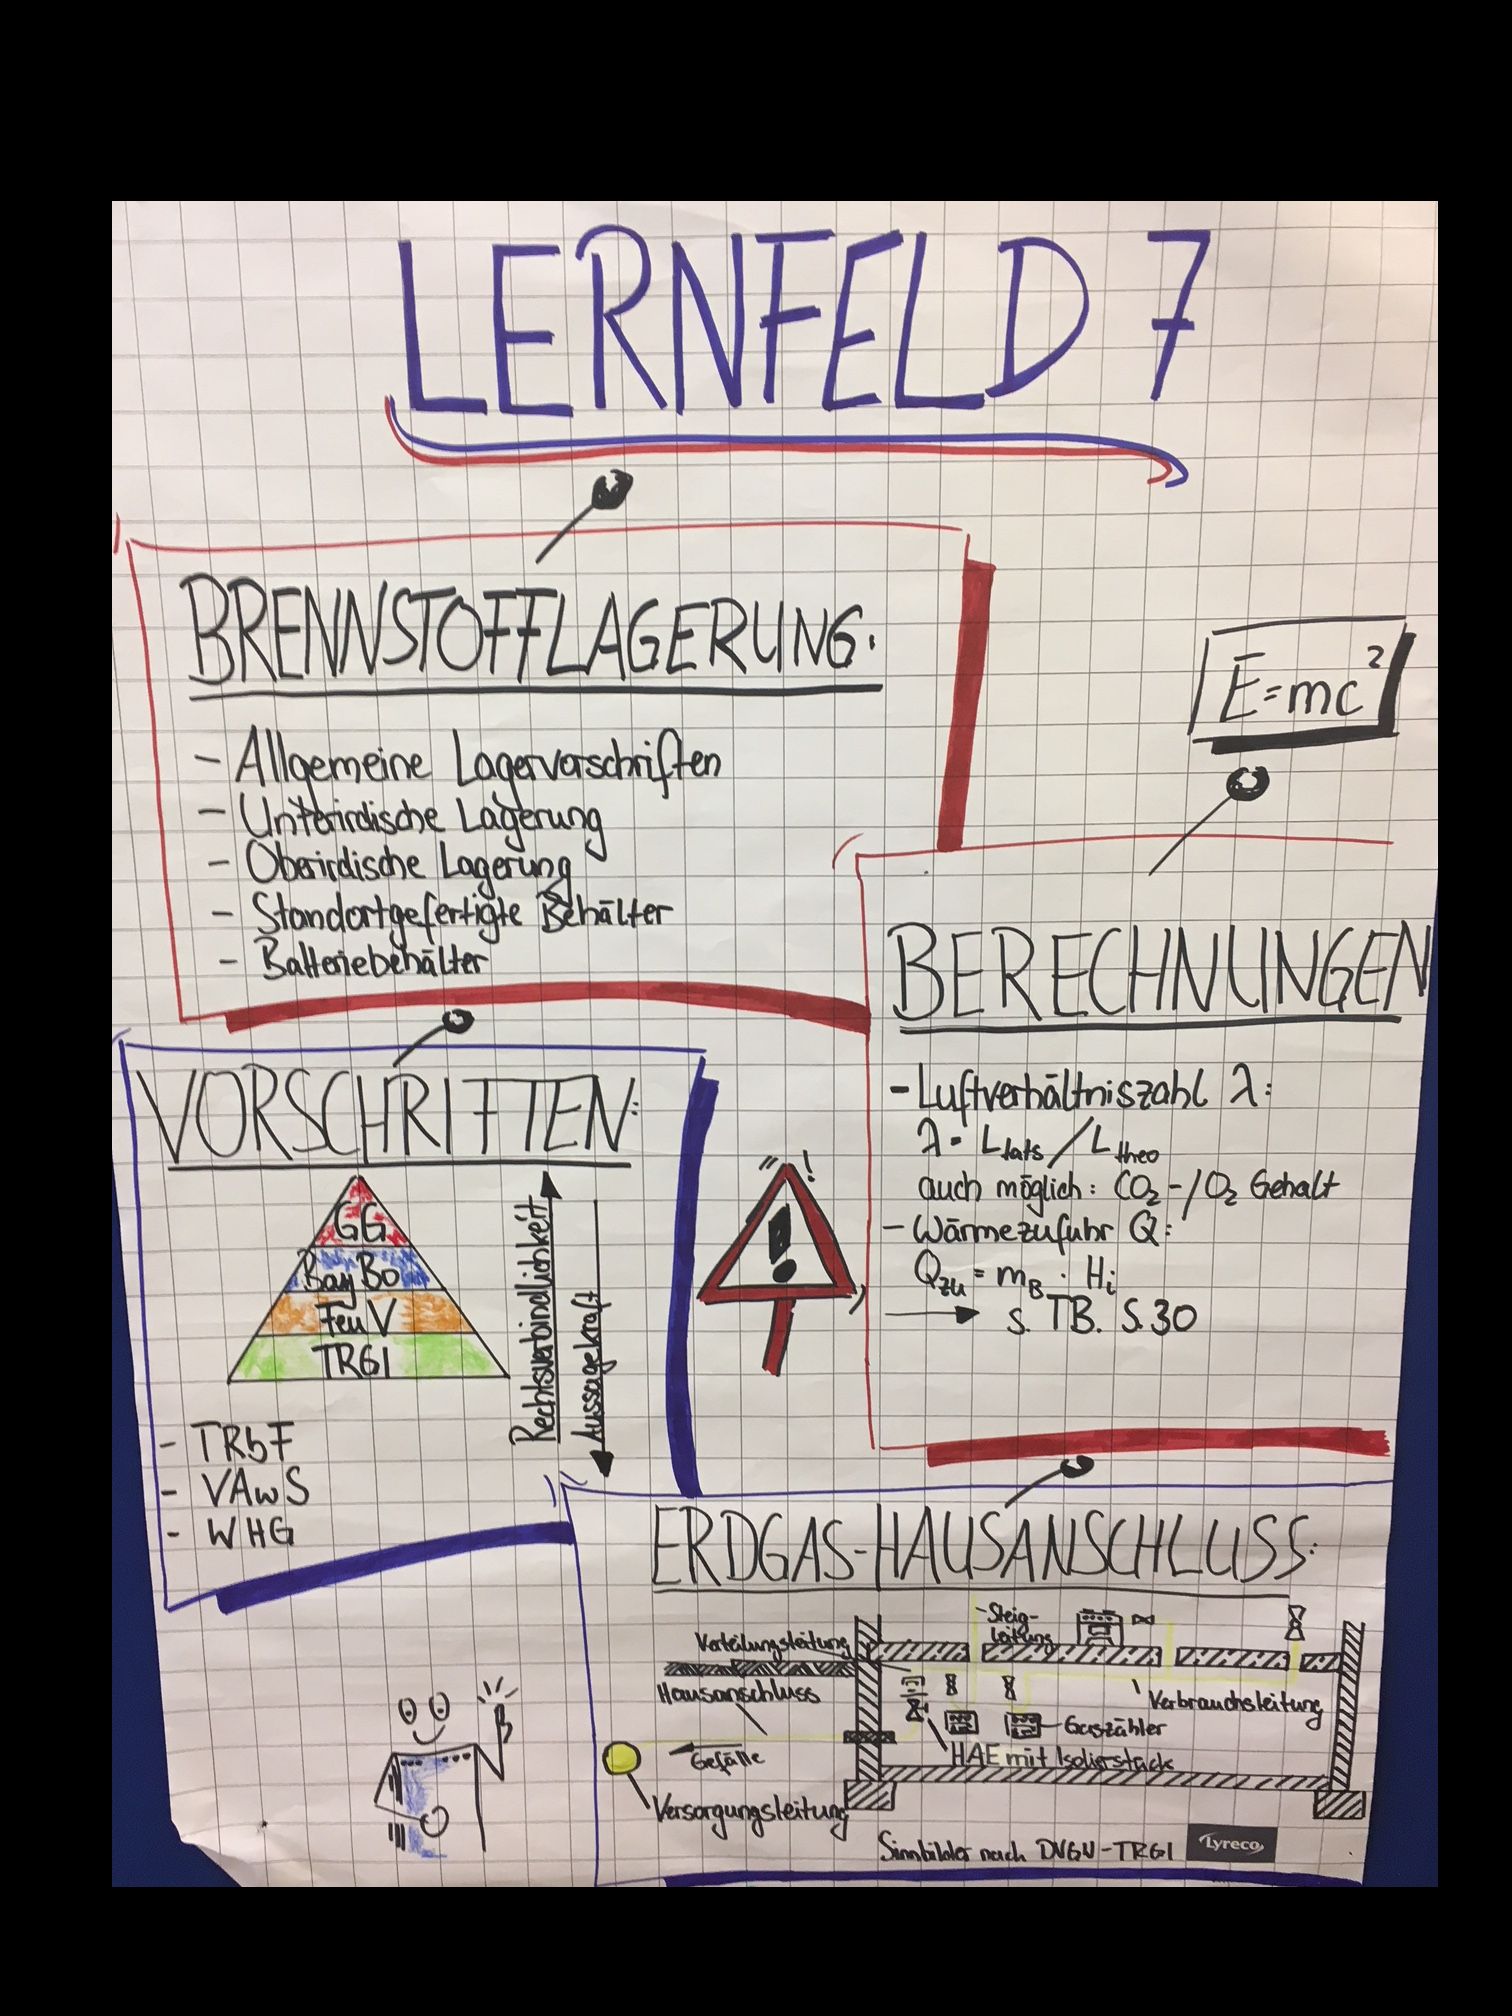 LERNFELD 7
BRENNSTOFFLAGERUNG:
- Allgemeine Lagervorschriften
- Unterirdische Lagerung
- Oberirdische Lagerung
- Standortgefertigte Behälter
- Batteriebehälter
E=mc²
BERECHNUNGEN
- Luftverhältniszahl λ:
λ = L_tats / L_theo
auch möglich: CO₂-/O₂ Gehalt
- Wärmezufuhr Q:
Q_zu = m_B · H_i
→ s. TB. S.30
VORSCHRIFTEN:
GG
BayBo
FeuV
TRGI
Rechtsverbindlichkeit
Aussagekraft
- TRbF
- VAwS
- WHG
!
ERDGAS-HAUSANSCHLUSS:
Verteilungsleitung
- Steig-
leitung
Hausanschluss
Verbrauchsleitung
Gaszähler
HAE mit Isolierstück
Gefälle
Versorgungsleitung
Sinnbilder nach DVGW-TRGI
Lyreco